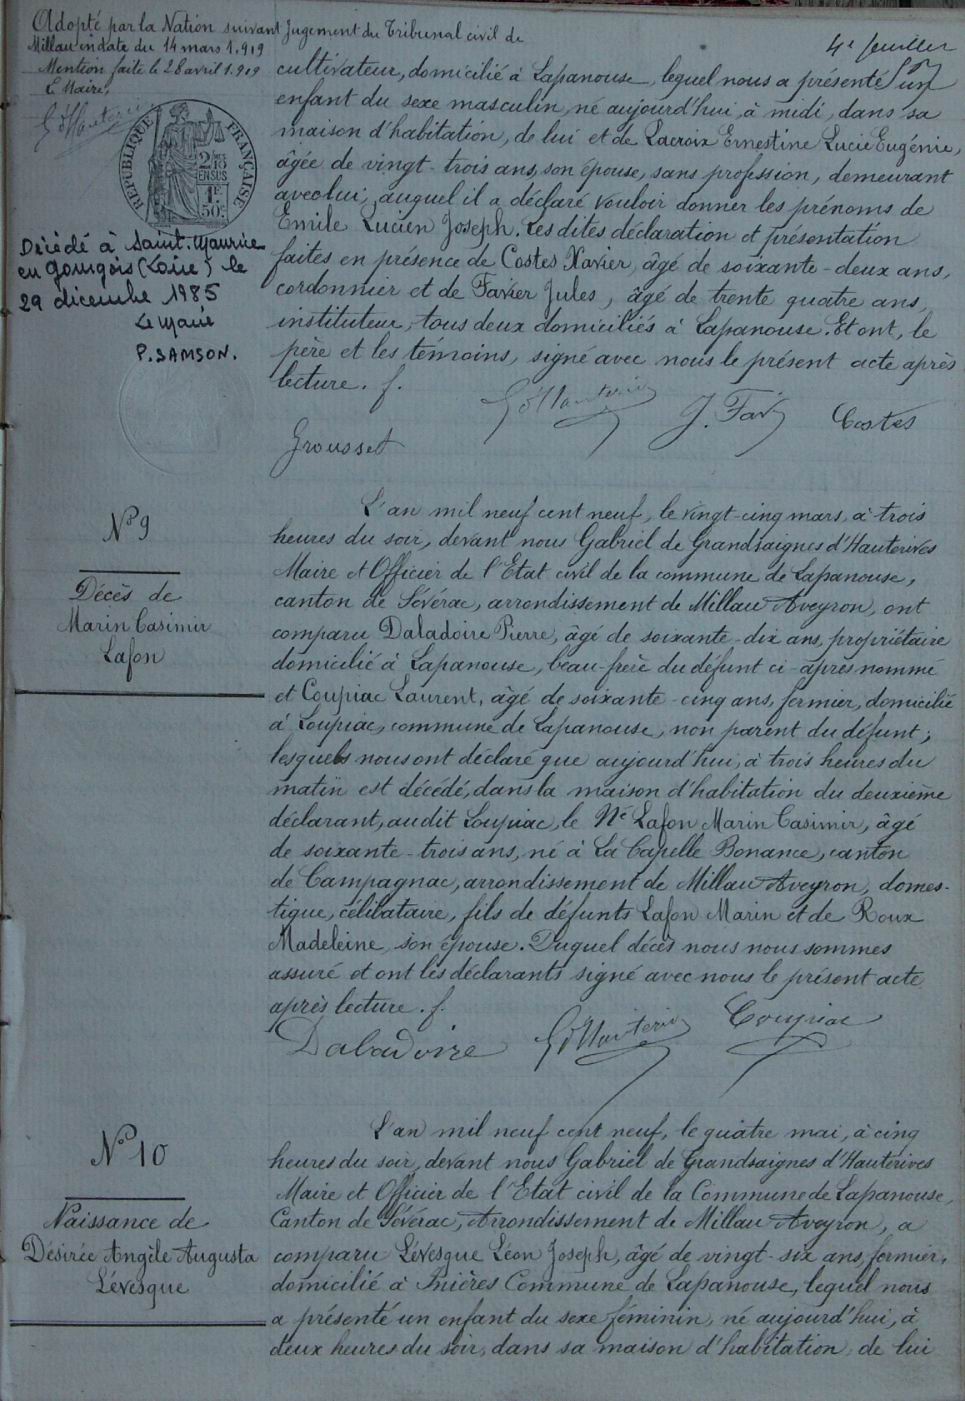 Adopté par la Nation suivant Jugement du Tribunal civil de
Millau en date du 14 mars 1.919
Mention faite le 28 avril 1.919
Le Maire,
4e feuillet
RÉPUBLIQUE FRANÇAISE
2/10
EN SUS
1F
50c
Décédé à Saint-Maurice
en Gourgois (Loire) le
29 décembre 1985
Le Maire
P. SAMSON.
cultivateur, domicilié à Lapanouse, lequel nous a présenté un
enfant du sexe masculin, né aujourd'hui, à midi, dans sa
maison d'habitation, de lui et de Lacroix Ernestine Lucie Eugénie,
âgée de vingt-trois ans, son épouse, sans profession, demeurant
avec lui, auquel il a déclaré vouloir donner les prénoms de
Emile Lucien Joseph. Les dites déclaration et présentation
faites en présence de Costes Xavier, âgé de soixante-deux ans,
cordonnier et de Favier Jules, âgé de trente quatre ans,
instituteur, tous deux domiciliés à Lapanouse. Et ont, le
père et les témoins, signé avec nous le présent acte après
lecture. f.
J. Fav Costes
Grousset
No 9
Décès de
Marin Casimir
Lafon
L'an mil neuf cent neuf, le vingt-cinq mars, à trois
heures du soir, devant nous Gabriel de Grandsaignes d'Hauterives
Maire et Officier de l'Etat civil de la commune de Lapanouse,
canton de Sévérac, arrondissement de Millau Aveyron, ont
comparu Daladoire Pierre, âgé de soixante-dix ans, propriétaire
domicilié à Lapanouse, beau-frère du défunt ci-après nommé
et Coupiac Laurent, âgé de soixante-cinq ans, fermier, domicilié
à Loupiac, commune de Lapanouse, non parent du défunt;
lesquels nous ont déclaré que aujourd'hui, à trois heures du
matin est décédé, dans la maison d'habitation du deuxième
déclarant, audit Loupiac, le Né Lafon Marin Casimir, âgé
de soixante-trois ans, né à La Capelle Bonance, canton
de Campagnac, arrondissement de Millau Aveyron, domes-
tique, célibataire, fils de défunts Lafon Marin et de Roux
Madeleine, son épouse. Duquel décès nous nous sommes
assuré et ont les déclarants signé avec nous le présent acte
après lecture. f.
Daladoire G d'Hauterives Coupiac
No 10
Naissance de
Désirée Angèle Augusta
Lévesque
L'an mil neuf cent neuf, le quatre mai, à cinq
heures du soir, devant nous Gabriel de Grandsaignes d'Hauterives
Maire et Officier de l'Etat civil de la Commune de Lapanouse,
Canton de Sévérac, Arrondissement de Millau Aveyron, a
comparu Lévesque Léon Joseph, âgé de vingt-six ans, fermier,
domicilié à Inières Commune de Lapanouse, lequel nous
a présenté un enfant du sexe féminin, né aujourd'hui, à
deux heures du soir, dans sa maison d'habitation, de lui